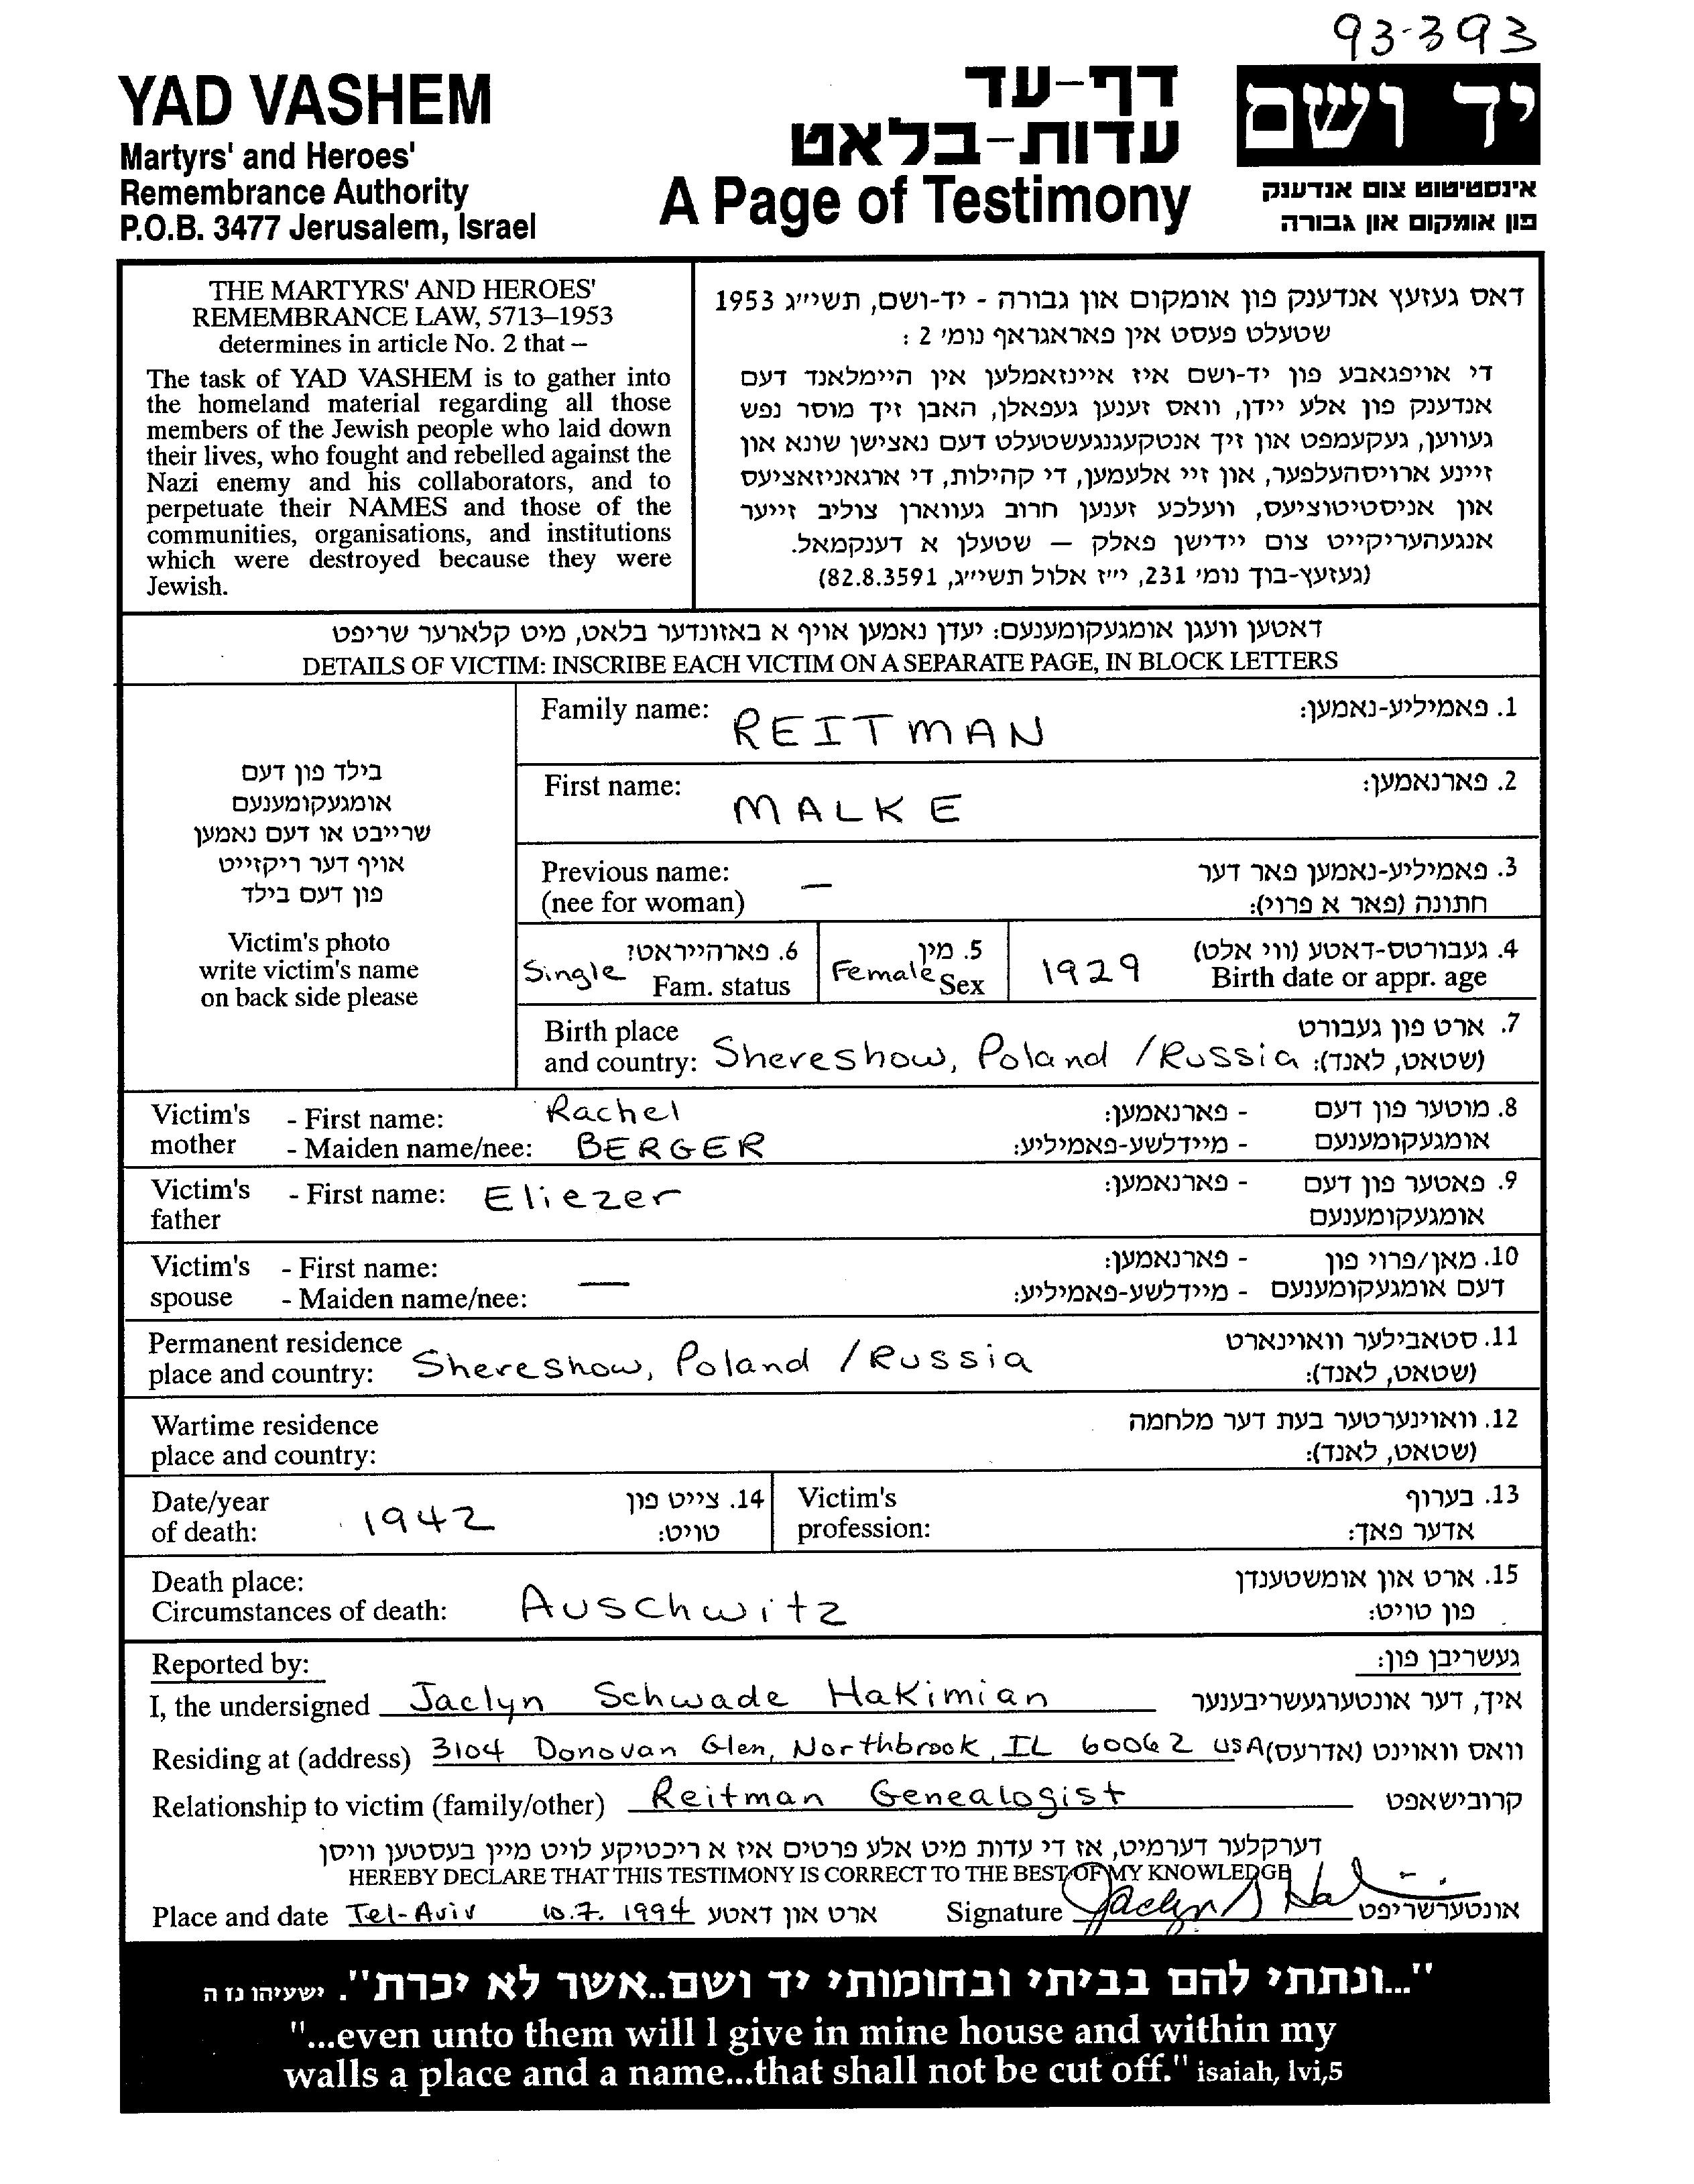 93-393
YAD VASHEM
Martyrs' and Heroes'
Remembrance Authority
P.O.B. 3477 Jerusalem, Israel
דף-עד
עדות-בלאט
A Page of Testimony
יד ושם
אינסטיטוט צום אנדענק
פון אומקום און גבורה
THE MARTYRS' AND HEROES'
REMEMBRANCE LAW, 5713–1953
determines in article No. 2 that –
The task of YAD VASHEM is to gather into
the homeland material regarding all those
members of the Jewish people who laid down
their lives, who fought and rebelled against the
Nazi enemy and his collaborators, and to
perpetuate their NAMES and those of the
communities, organisations, and institutions
which were destroyed because they were
Jewish.
דאס געזעץ אנדענק פון אומקום און גבורה - יד-ושם, תשי״ג 1953
שטעלט פעסט אין פאראגראף נומ׳ 2 :
די אויפגאבע פון יד-ושם איז איינזאמלען אין היימלאנד דעם
אנדענק פון אלע יידן, וואס זענען געפאלן, האבן זיך מוסר נפש
געווען, געקעמפט און זיך אנטקעגנגעשטעלט דעם נאצישן שונא און
זיינע ארויסהעלפער, און זיי אלעמען, די קהילות, די ארגאניזאציעס
און אניסטיטוציעס, וועלכע זענען חרוב געווארן צוליב זייער
אנגעהעריקייט צום יידישן פאלק — שטעלן א דענקמאל.
(געזעץ-בוך נומ׳ 231, י״ז אלול תשי״ג, 82.8.3591)
דאטען וועגן אומגעקומענעם: יעדן נאמען אויף א באזונדער בלאט, מיט קלארער שריפט
DETAILS OF VICTIM: INSCRIBE EACH VICTIM ON A SEPARATE PAGE, IN BLOCK LETTERS
בילד פון דעם
אומגעקומענעם
שרייבט או דעם נאמען
אויף דער ריקזייט
פון דעם בילד
Victim's photo
write victim's name
on back side please
Family name: REITMAN 1. פאמיליע-נאמען:
First name: MALKE 2. פארנאמען:
Previous name: — 3. פאמיליע-נאמען פאר דער
(nee for woman) חתונה (פאר א פרוי):
Single 6. פארהייראט? Fam. status
Female 5. מין Sex
1929 4. געבורטס-דאטע (ווי אלט)
Birth date or appr. age
Birth place 7. ארט פון געבורט
and country: Shereshow, Poland / Russia (שטאט, לאנד):
Victim's - First name: Rachel - פארנאמען: 8. מוטער פון דעם
mother - Maiden name/nee: BERGER - מיידלשע-פאמיליע: אומגעקומענעם
Victim's - First name: Eliezer - פארנאמען: 9. פאטער פון דעם
father אומגעקומענעם
Victim's - First name: — - פארנאמען: 10. מאן/פרוי פון
spouse - Maiden name/nee: - מיידלשע-פאמיליע: דעם אומגעקומענעם
Permanent residence 11. סטאבילער וואוינארט
place and country: Shereshow, Poland / Russia (שטאט, לאנד):
Wartime residence 12. וואוינערטער בעת דער מלחמה
place and country: (שטאט, לאנד):
Date/year 1942 14. צייט פון
of death: טויט:
Victim's 13. בערוף
profession: אדער פאך:
Death place: 15. ארט און אומשטענדן
Circumstances of death: Auschwitz פון טויט:
Reported by: געשריבן פון:
I, the undersigned Jaclyn Schwade Hakimian איך, דער אונטערגעשריבענער
Residing at (address) 3104 Donovan Glen, Northbrook, IL 60062 USA וואס וואוינט (אדרעס)
Relationship to victim (family/other) Reitman Genealogist קרובישאפט
דערקלער דערמיט, אז די עדות מיט אלע פרטים איז א ריכטיקע לויט מיין בעסטען וויסן
HEREBY DECLARE THAT THIS TESTIMONY IS CORRECT TO THE BEST OF MY KNOWLEDGE
Place and date Tel-Aviv 10.7. 1994 ארט און דאטע Signature Jaclyn S Hakimian אונטערשריפט
"...ונתתי להם בביתי ובחומותי יד ושם..אשר לא יכרת". ישעיהו נז ה
"...even unto them will I give in mine house and within my
walls a place and a name...that shall not be cut off." isaiah, lvi,5